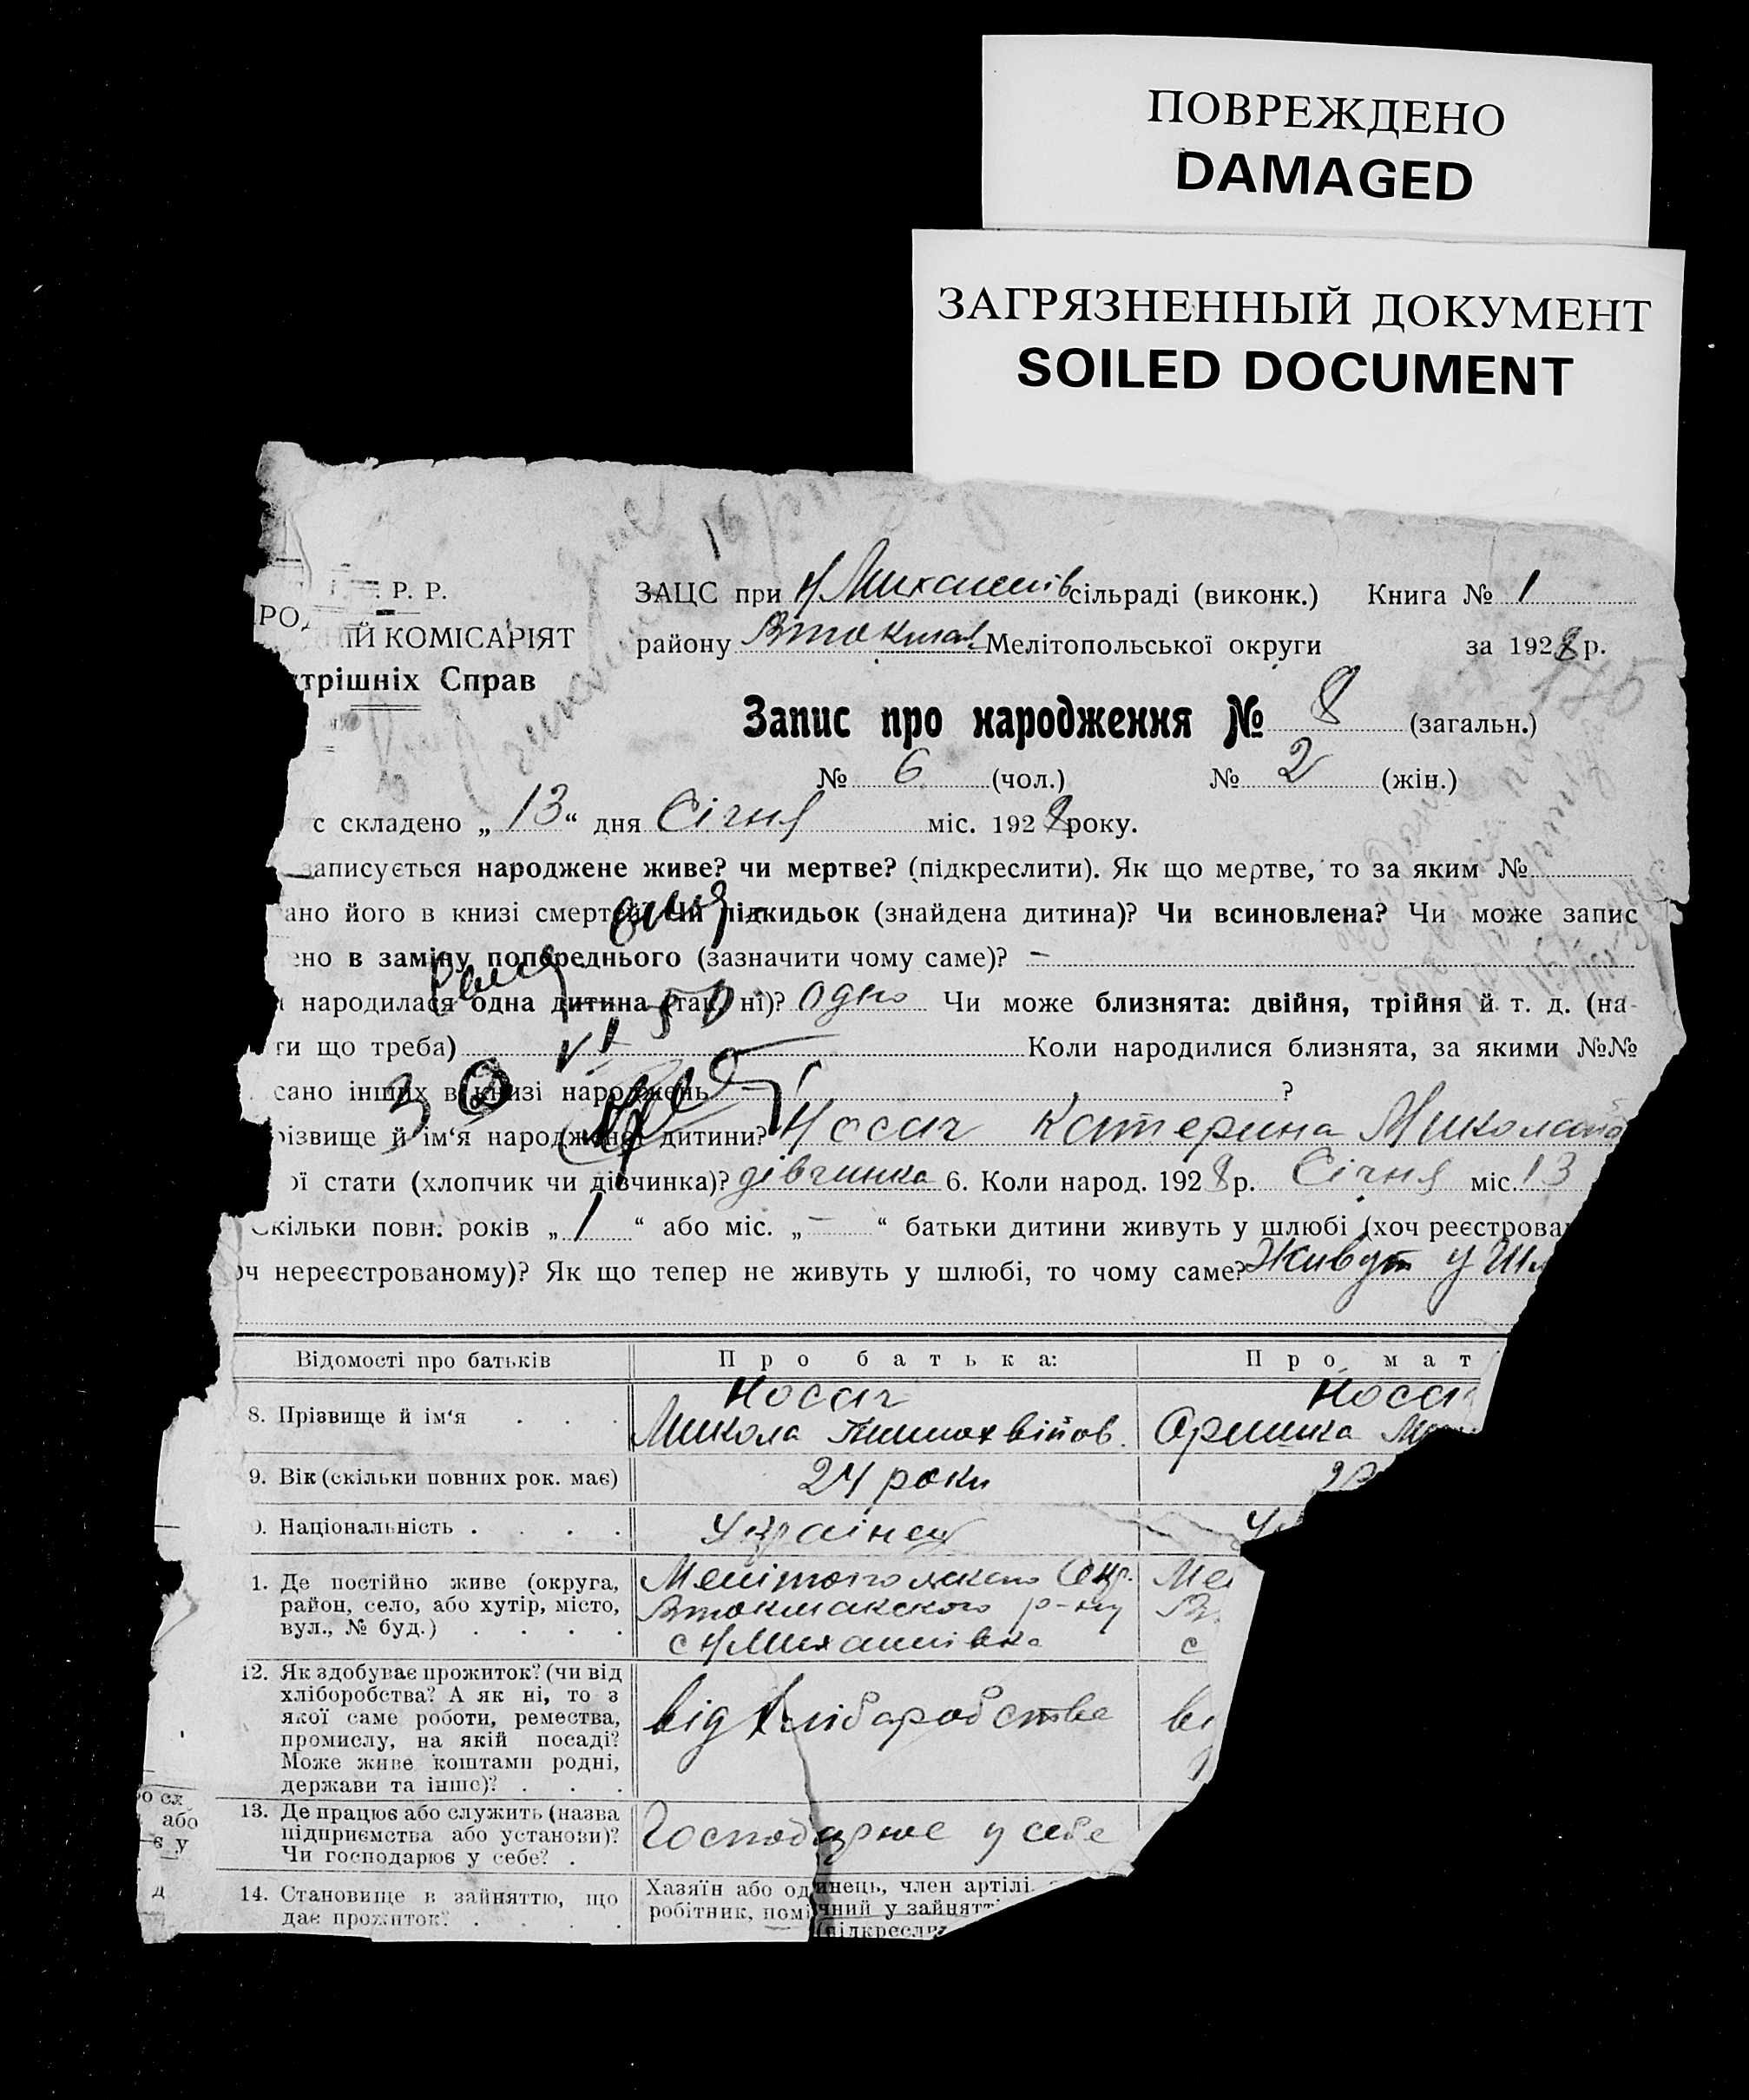 ПОВРЕЖДЕНО
DAMAGED
ЗАГРЯЗНЕННЫЙ ДОКУМЕНТ
SOILED DOCUMENT
Р. Р.
ИЙ КОМІСАРІЯТ
трішніх Справ
ЗАЦС при Н Михайлів сільраді (виконк.) Книга № 1
району Втокмак Мелітопольської округи за 1928 р.
Запис про народження № 8 (загальн.)
№ 6 (чол.) № 2 (жін.)
с складено „13“ дня Січня міс. 1928 року.
записується народжене живе? чи мертве? (підкреслити). Як що мертве, то за яким №
ано його в книзі смертей? Чи підкидьок (знайдена дитина)? Чи всиновлена? Чи може запис
ено в заміну попереднього (зазначити чому саме)? —
народилася одна дитина (так, ні)? Одно Чи може близнята: двійня, трійня й т. д. (на-
ти що треба) Коли народилися близнята, за якими №№
сано інших в книзі народжень ?
різвище й ім‘я народженої дитини? Носач Катерина Микола
ої стати (хлопчик чи дівчинка)? дівчинка 6. Коли народ. 1928 р. Січня міс. 13
Скільки повн. років „1“ або міс. „—“ батьки дитини живуть у шлюбі (хоч реєстрова
оч нереєстрованому)? Як що тепер не живуть у шлюбі, то чому саме? Живут у Шл
Відомості про батьків Про батька: Про мат
8. Прізвище й ім‘я . . . Носач Носа
Микола Тимохвійов. Оришка
9. Вік (скільки повних рок. має) 24 роки
0. Національність . . . . Українец
1. Де постійно живе (округа, район, село, або хутір, місто, вул., № буд.) . . . .
Мелітопольского Окр. Ме
Втокмакского р-ну В
с Н Михайлівка с
12. Як здобуває прожиток? (чи від хліборобства? А як ні, то з якої саме роботи, ремества, промислу, на якій посаді? Може живе коштами родні, держави та інше)? . . .
від хліборобства ві
13. Де працює або служить (назва підприємства або установи)? Чи господарює у себе? .
Господарює у себе
14. Становище в зайняттю, що дає прожиток? . . . .
Хазяїн або одинець, член артілі
робітник, помічний у зайнятт
(підкресли
о сл
або
є у
д